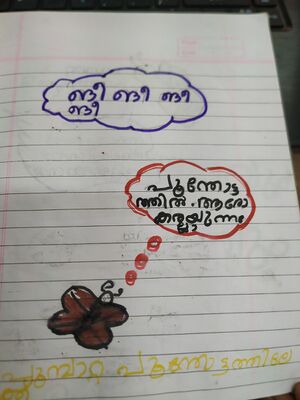 ങീ ങീ ങീ
ങീ
പൂന്തോട്ട
ത്തിൽ ആരോ
കരയുന്ന
പൂമ്പാറ്റ പൂന്തോട്ടത്തിലെ